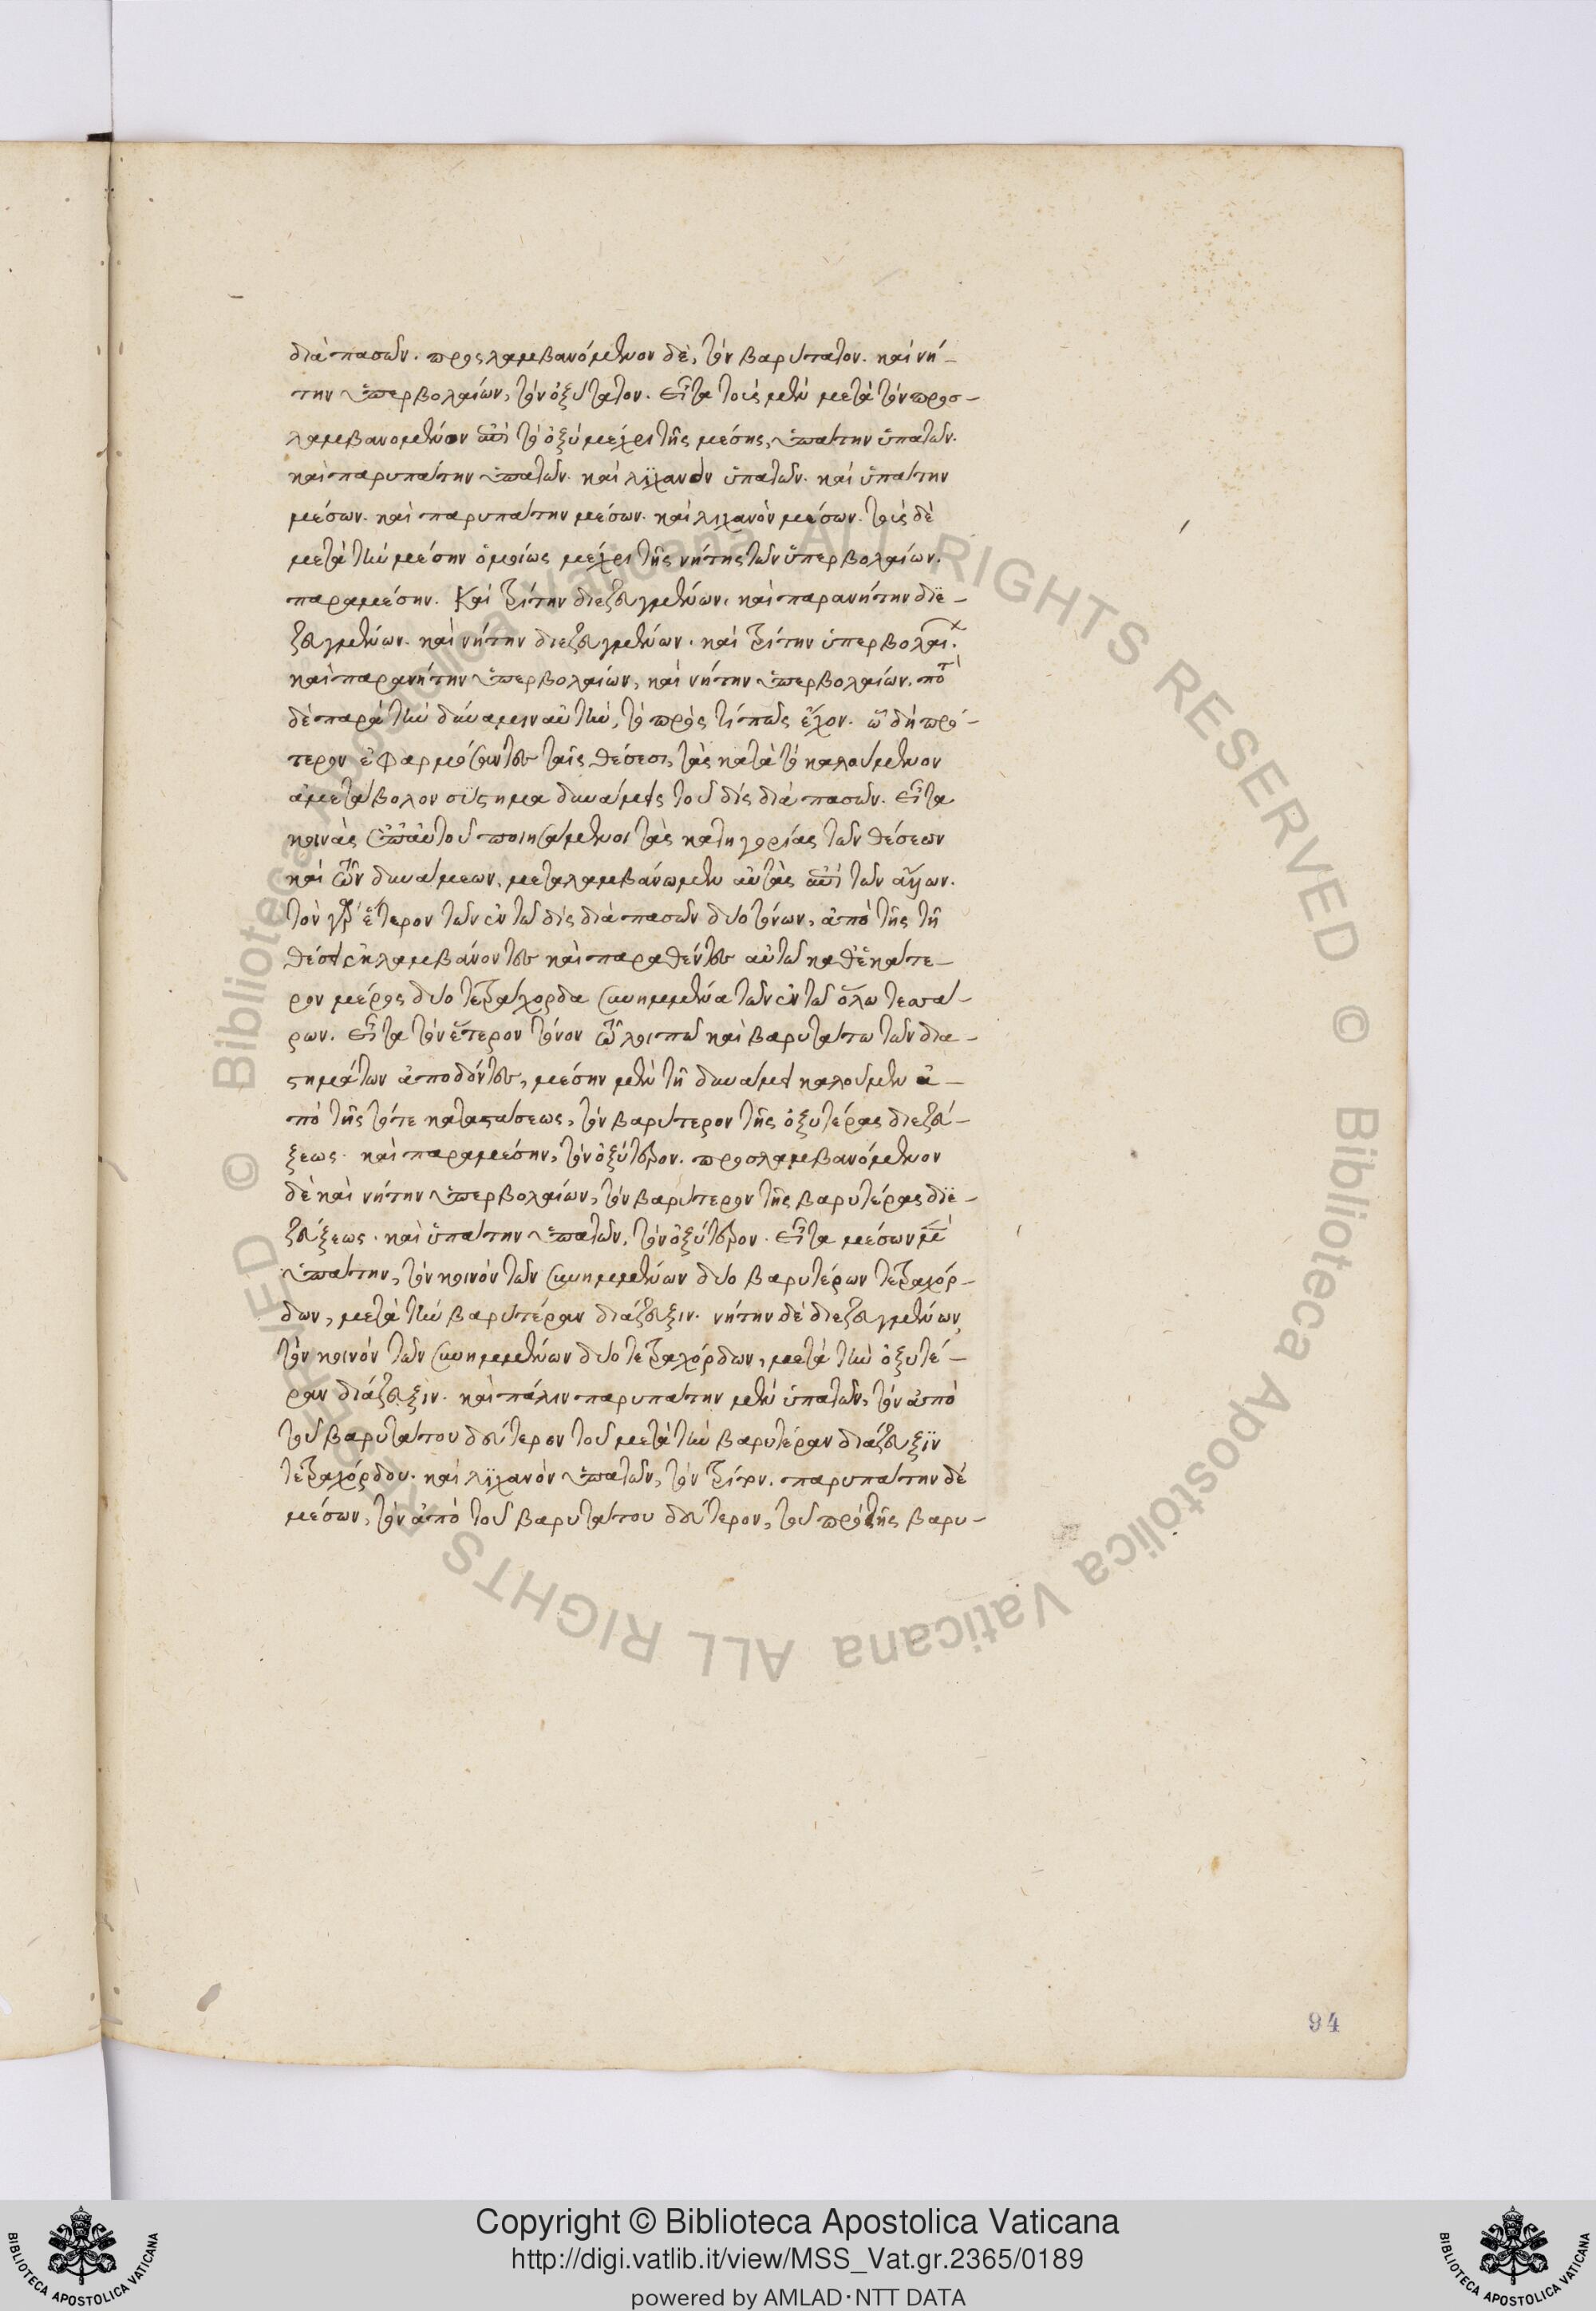 διὰ πασῶν. προσλαμβανόμενον δὲ, τὸν βαρύτατον. καὶ νή-
την ὑπερβολαίων, τὸν ὀξύτατον. εἶτα τοὺς μὲν μετὰ τὸν προσ-
λαμβανόμενον ἐπὶ τὸ ὀξὺ μέχρι τῆς μέσης, ὑπάτην ὑπατῶν.
καὶ παρυπάτην ὑπατῶν. καὶ λιχανὸν ὑπατῶν. καὶ ὑπάτην
μέσων. καὶ παρυπάτην μέσων. καὶ λιχανὸν μέσων. τοὺς δὲ
μετὰ τὴν μέσην ὁμοίως μέχρι τῆς νήτης τῶν ὑπερβολαίων.
παραμέσην. Καὶ τρίτην διεζευγμένων. καὶ παρανήτην διε-
ζευγμένων. καὶ νήτην διεζευγμένων. καὶ τρίτην ὑπερβολαί.
καὶ παρανήτην ὑπερβολαίων, καὶ νήτην ὑπερβολαίων. ποτὲ
δὲ παρὰ τὴν δύναμιν αὐτὴν, τὸ πρός τί πως ἔχον. ᾧ δὴ πρό-
τερον ἐφαρμόσαντες ταῖς θέσεσι, τὰς κατὰ τὸ καλούμενον
ἀμετάβολον σύστημα δυνάμεις τοῦ δὶς διὰ πασῶν. εἶτα
κοινὰς ἐπ' αὐτοῦ ποιησάμενοι τὰς κατηγορίας τῶν θέσεων
καὶ τῶν δυνάμεων, μεταλαμβάνωμεν αὐτὰς ἐπὶ τῶν ἄλλων.
τὸν γὰρ ἕτερον τῶν ἐν τῷ δὶς διὰ πασῶν δύο τόνων, ἀπὸ τῆς τῇ
θέσει ἐκλαμβάνοντες καὶ παραθέντες αὐτῷ καθ' ἑκάτε-
ρον μέρος δύο τετράχορδα συνημμένα τῶν ἐν τῷ ὅλῳ τεσσά-
ρων. εἶτα τὸν ἕτερον τόνον τῷ λοιπῷ καὶ βαρυτάτῳ τῶν δια-
στημάτων ἀποδόντες, μέσην μὲν τῇ δυνάμει καλοῦμεν ἀ-
πὸ τῆς τότε καταστάσεως, τὸν βαρύτερον τῆς ὀξυτέρας διεζεύ-
ξεως. καὶ παραμέσην, τὸν ὀξύτερον. προσλαμβανόμενον
δὲ καὶ νήτην ὑπερβολαίων, τὸν βαρύτερον τῆς βαρυτέρας διε-
ζεύξεως. καὶ ὑπάτην ὑπατῶν, τὸν ὀξύτερον. εἶτα μέσων μὲν
ὑπάτην, τὸν κοινὸν τῶν συνημμένων δύο βαρυτέρων τετραχόρ-
δων, μετὰ τὴν βαρυτέραν διάζευξιν. νήτην δὲ διεζευγμένων,
τὸν κοινὸν τῶν συνημμένων δύο τετραχόρδων, μετὰ τὴν ὀξυτέ-
ραν διάζευξιν. καὶ πάλιν παρυπάτην μὲν ὑπατῶν, τὸν ἀπὸ
τοῦ βαρυτάτου δεύτερον τοῦ μετὰ τὴν βαρυτέραν διάζευξιν
τετραχόρδου. καὶ λιχανὸν ὑπατῶν, τὸν τρίτον. παρυπάτην δὲ
μέσων, τὸν ἀπὸ τοῦ βαρυτάτου δεύτερον, τοῦ πρὸ τῆς βαρυ-
94
© Biblioteca Apostolica Vaticana ALL RIGHTS RESERVED © Biblioteca Apostolica Vaticana ALL RIGHTS RESERVED
Copyright © Biblioteca Apostolica Vaticana
http://digi.vatlib.it/view/MSS_Vat.gr.2365/0189
powered by AMLAD·NTT DATA
BIBLIOTECA APOSTOLICA VATICANA
BIBLIOTECA APOSTOLICA VATICANA